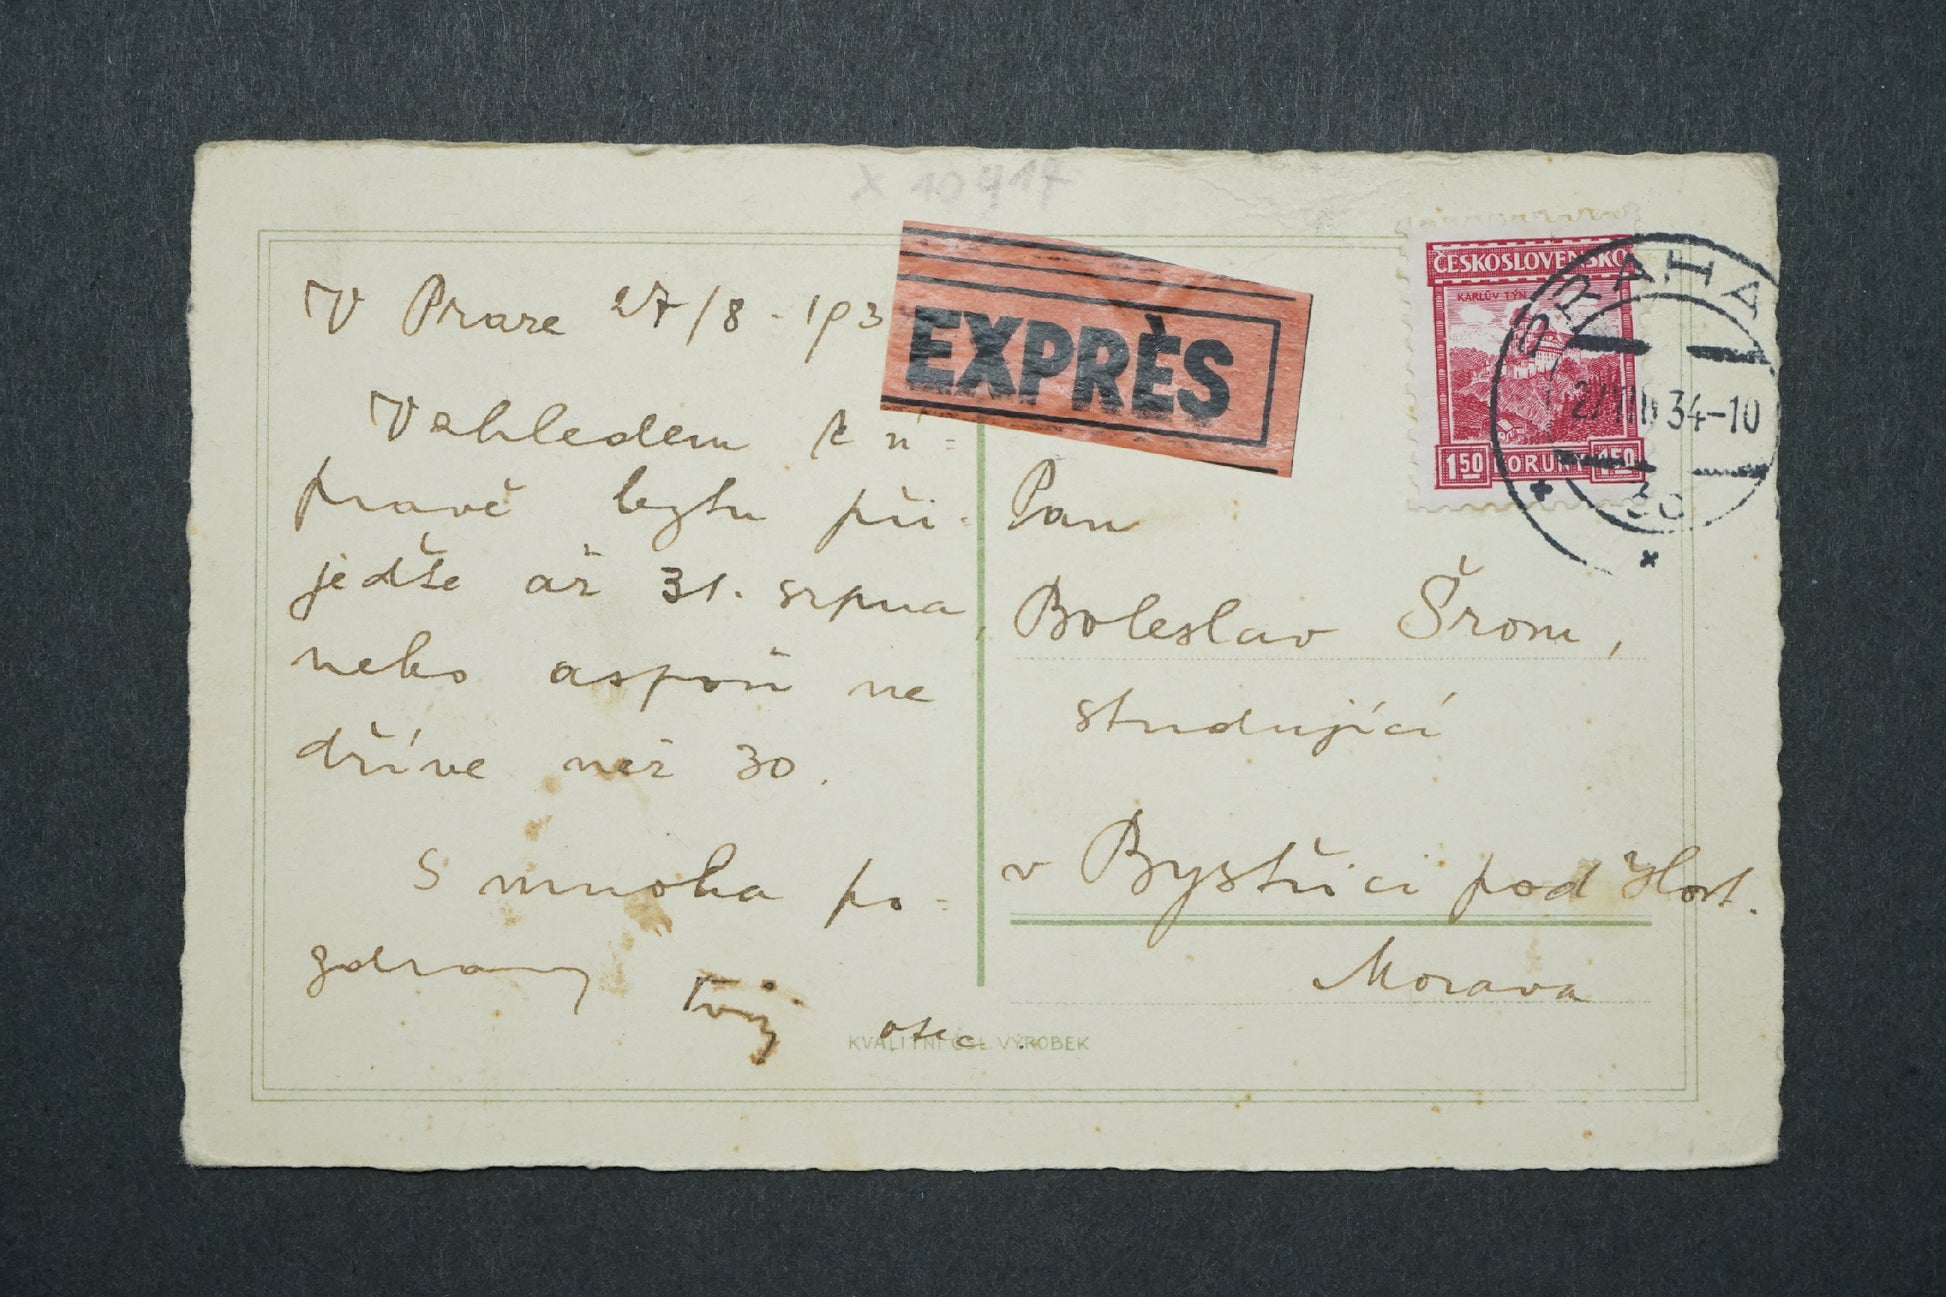 x 10917
V Praze 27/8 - 193
EXPRÈS
ČESKOSLOVENSKO
KARLŮV TÝN
1 50 KORUNY 1 50
PRAHA
27 VIII 34-10
Vzhledem k ú=
pravě bytu při=
jeďte až 31. srpna,
nebo aspoň ne
dříve než 30.
S mnoha po=
zdravy Tvůj otec.
Pan
Boleslav Šrom,
studující
v Bystřici pod Host.
Morava
KVALITNÍ ČSL. VÝROBEK